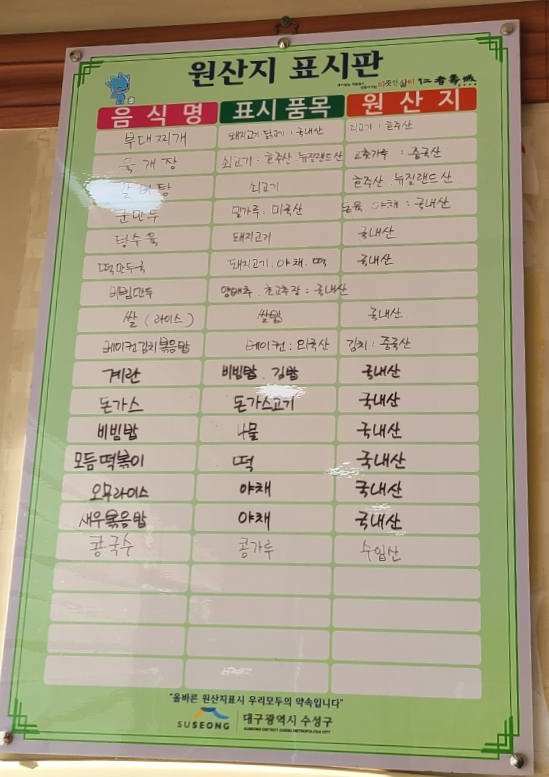 원산지 표시판
따뜻한 삶터 仁者壽城
음식명 표시품목 원산지
부대찌개 돼지고기 닭고기 : 국내산 쇠고기 : 호주산
육개장 쇠고기 : 호주산. 뉴질랜드산 고춧가루 : 중국산
갈비탕 쇠고기 호주산. 뉴질랜드산
군만두 밀가루 : 미국산 돈육 야채 : 국내산
탕수육 돼지고기 국내산
떡만두국 돼지고기. 야채. 떡 국내산
비빔만두 양배추. 초고추장 : 국내산
쌀 (라이스) 쌀밥 국내산.
베이컨김치볶음밥 베이컨 : 외국산 김치 : 중국산
계란 비빔밥. 김밥 국내산
돈가스 돈가스고기 국내산
비빔밥 나물 국내산
모듬떡볶이 떡 국내산
오무라이스 야채 국내산
새우볶음밥 야채 국내산
콩국수 콩가루 수입산
"올바른 원산지표시 우리모두의 약속입니다"
SUSEONG 대구광역시 수성구
SUSEONG DISTRICT DAEGU METROPOLITAN CITY